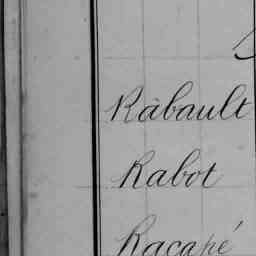 Rabault
Rabot
Racapé